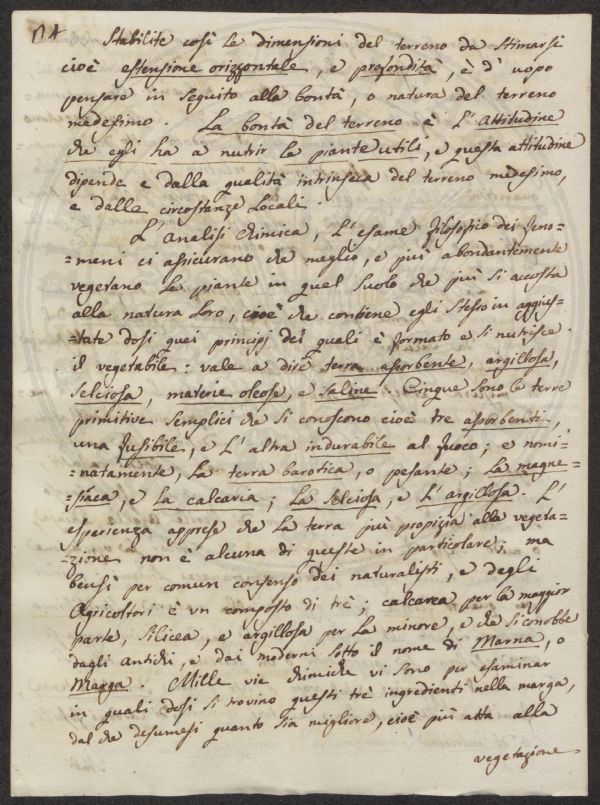 Stabilite così le dimensioni del terreno da Stimarsi
cioè estensione orizzontale, e profondità, è d'uopo
pensare in seguito alla bontà, o natura del terreno
medesimo. La bontà del terreno è l'Attitudine
che egli ha a nutrir le piante utili, e questa attitudine
dipende e dalla qualità intrinseca del terreno medesimo,
e dalle circostanze Locali.
L'Analisi Chimica, L'esame filosofico dei feno=
=meni ci assicurano che meglio, e più abondantemente
vegetano le piante in quel Suolo che più si accosta
alla natura loro, cioè che contiene egli stesso in aggius=
=tate dosi quei principj dei quali è formato e si nutrisce
il vegetabile: vale a dire terra assorbente, argillosa,
selciosa, materie oleose, e Saline. Cinque sono le terre
primitive semplici che si conoscono cioè tre assorbenti,
una fusibile, e L'altra indurabile al fuoco; e nomi=
=natamente, La terra barotica, o pesante; La magne=
=siaca, e la calcaria; La Selciosa, e L'argillosa. L'
esperienza apprese che La terra più propizia alla vegeta=
=zione non è alcuna di queste in particolare; ma
bensì per comun consenso dei naturalisti, e degli
Agricoltori è un composto di trè; calcarea per la maggior
parte, silicea, e argillosa per La minore, e che si conobbe
dagli antichi, e dai moderni sotto il nome di Marna, o
Marga. Mille vie chimiche vi sono per esaminar
in quali dosi si trovino questi trè ingredienti nella marga,
dal che desumesi quanto sia migliore, cioè più atta alla
vegetazione